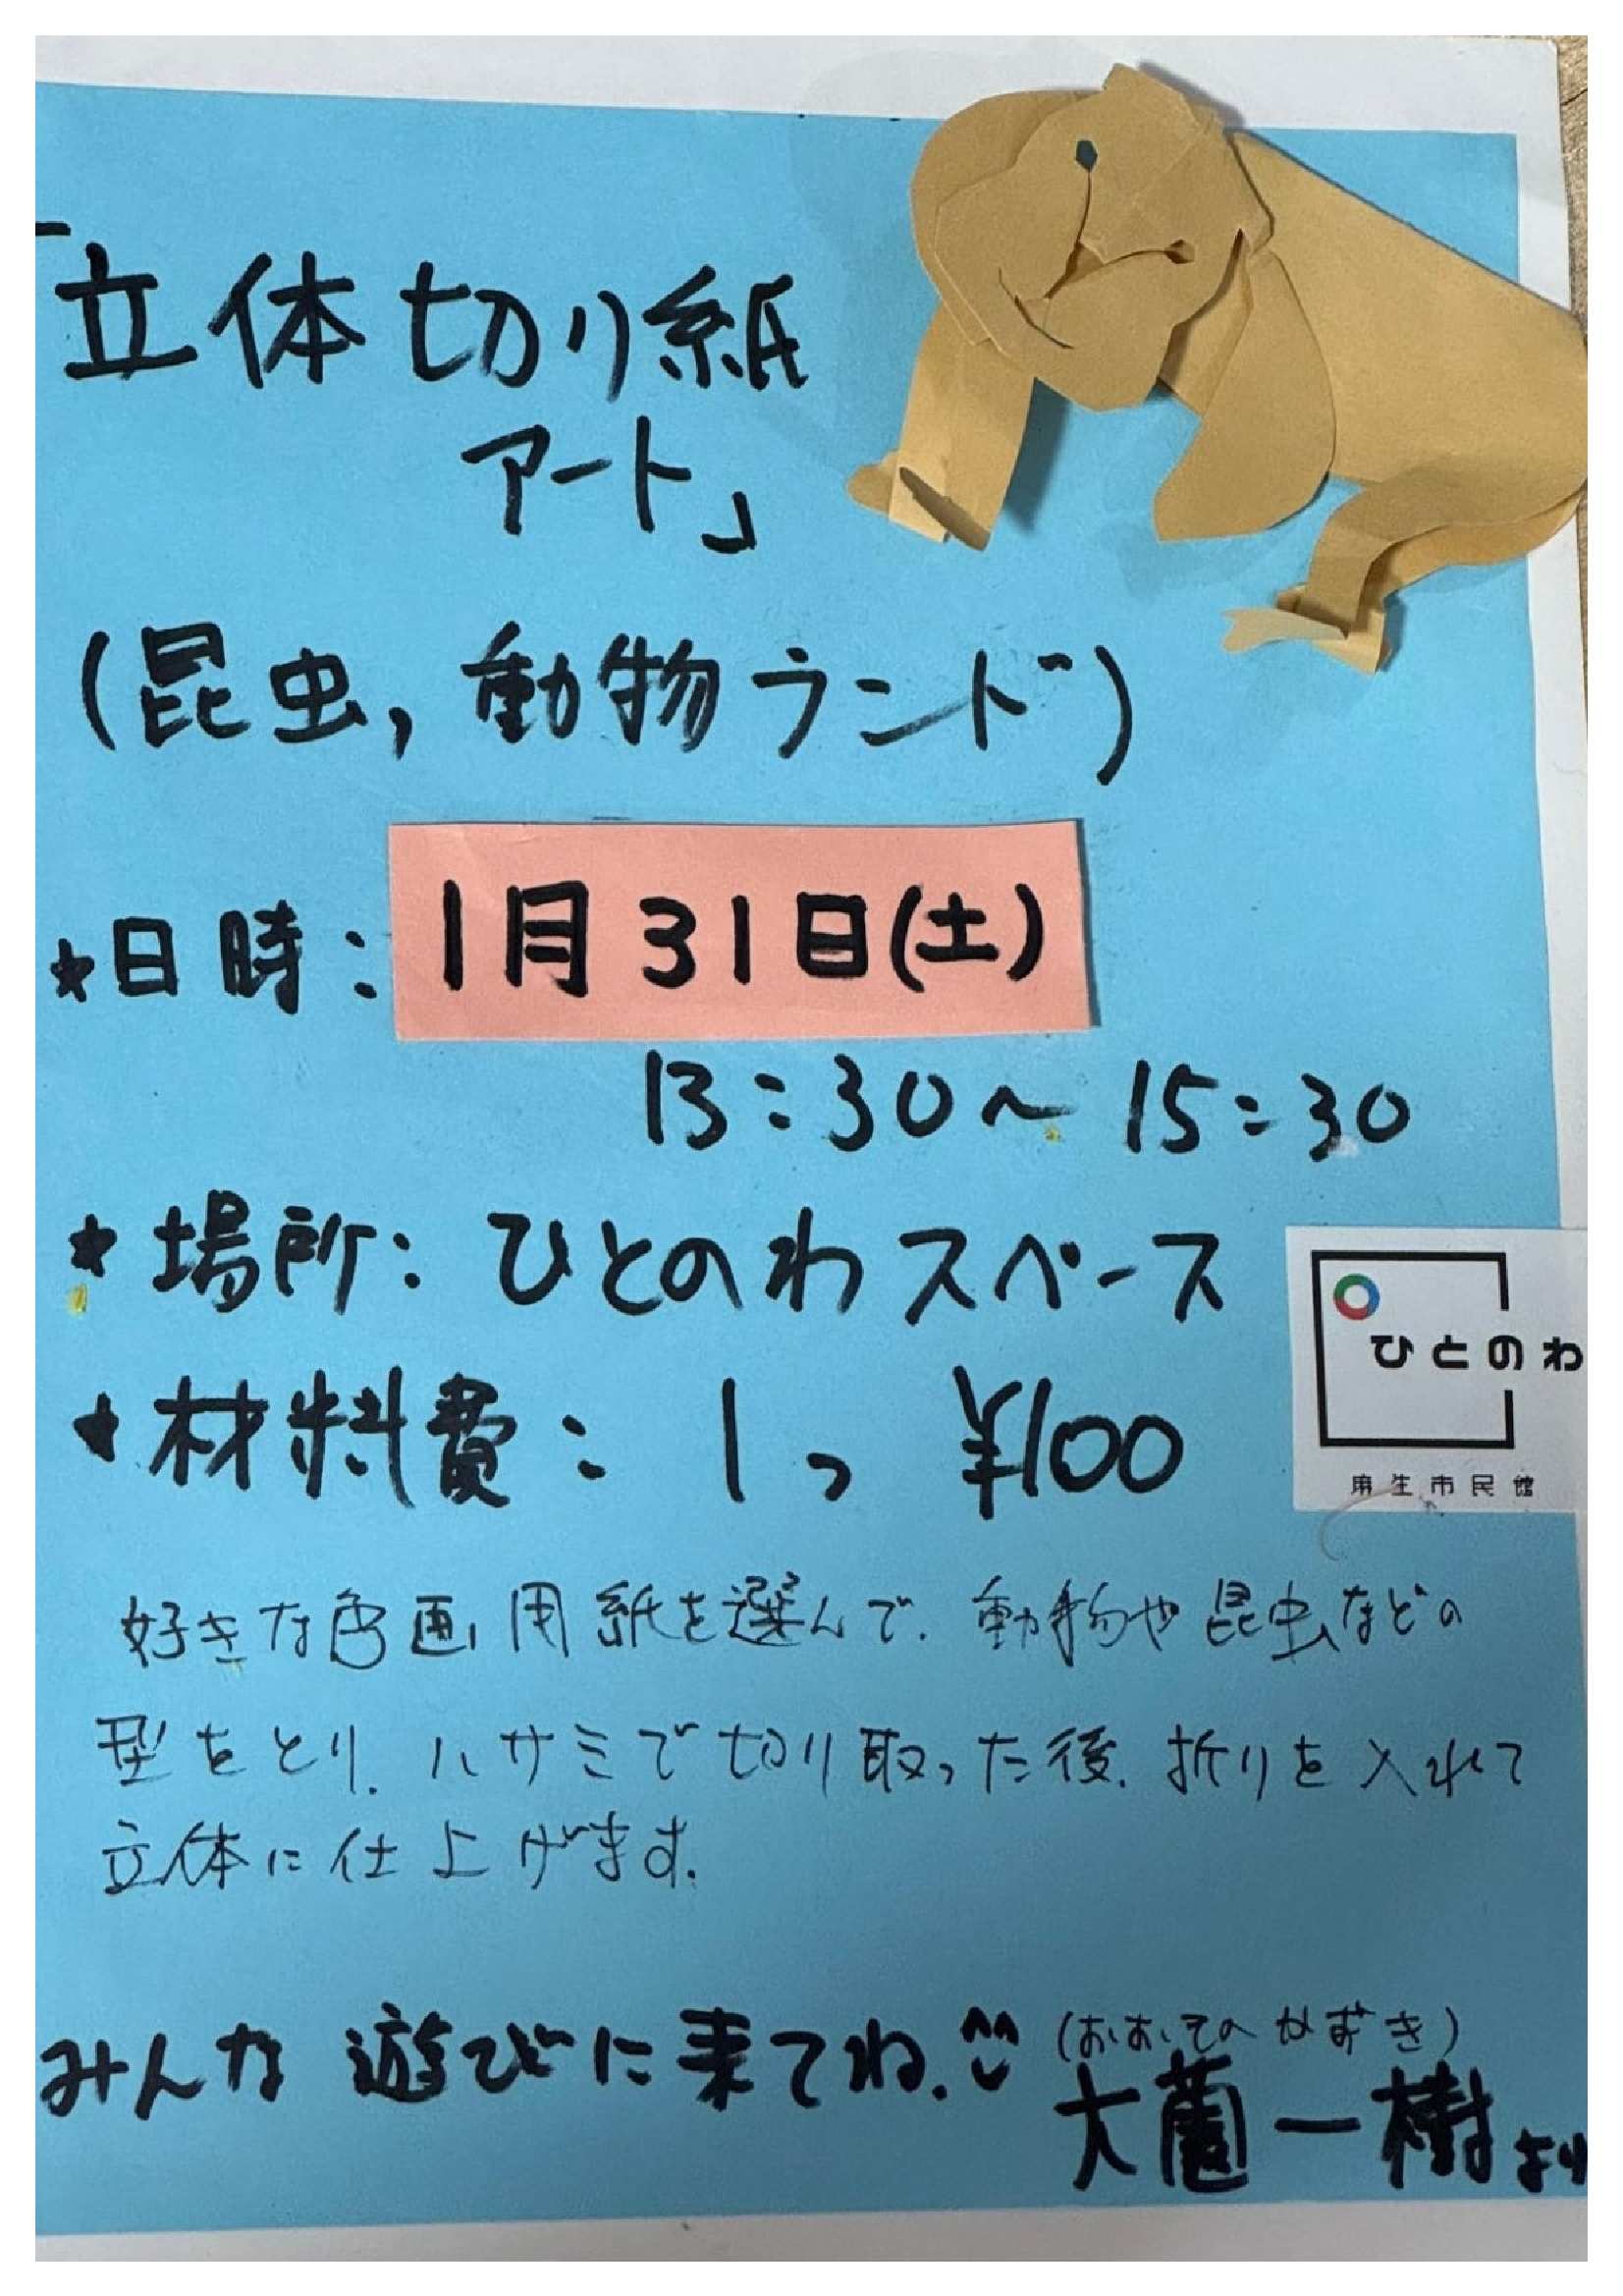 「立体切り紙
アート」
(昆虫, 動物ランド)
★日時: 1月31日(土)
13:30〜15:30
★場所: ひとのわスペース
★材料費: 1つ ¥100
ひとのわ
麻生市民館
好きな色画用紙を選んで、動物や昆虫などの
型をとり、ハサミで切り取った後、折りを入れて
立体に仕上げます。
(おおぞの かずき)
みんな遊びに来てね。 大薗一樹より